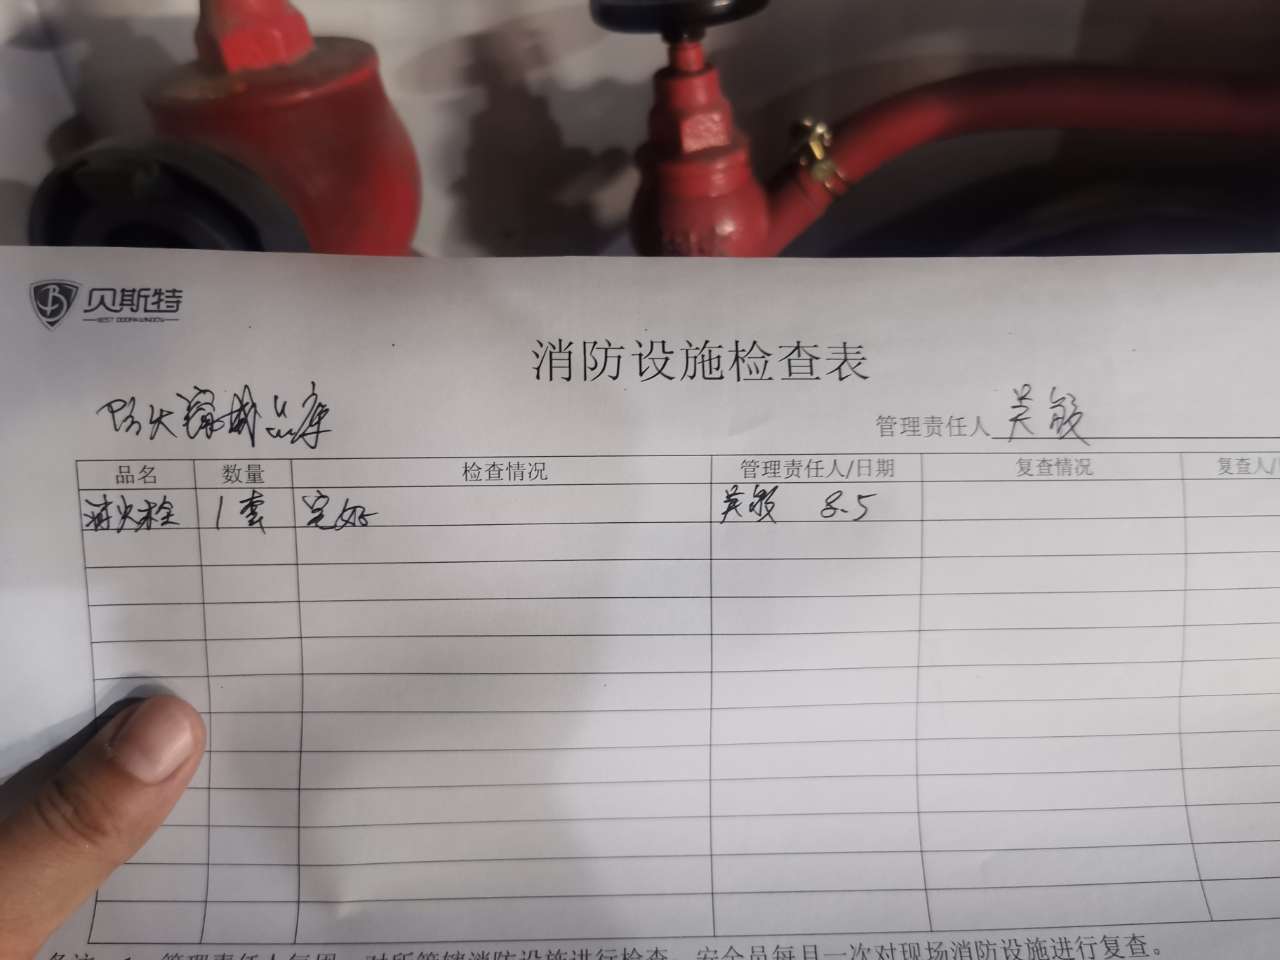 贝斯特
消防设施检查表
防火 成品库
管理责任人 吴敏
品名 数量 检查情况 管理责任人/日期 复查情况 复查人/
消火栓 1套 完好 吴敏 8.5
管理责任人每周 对所管辖消防设施进行检查,安全员每月一次对现场消防设施进行复查。